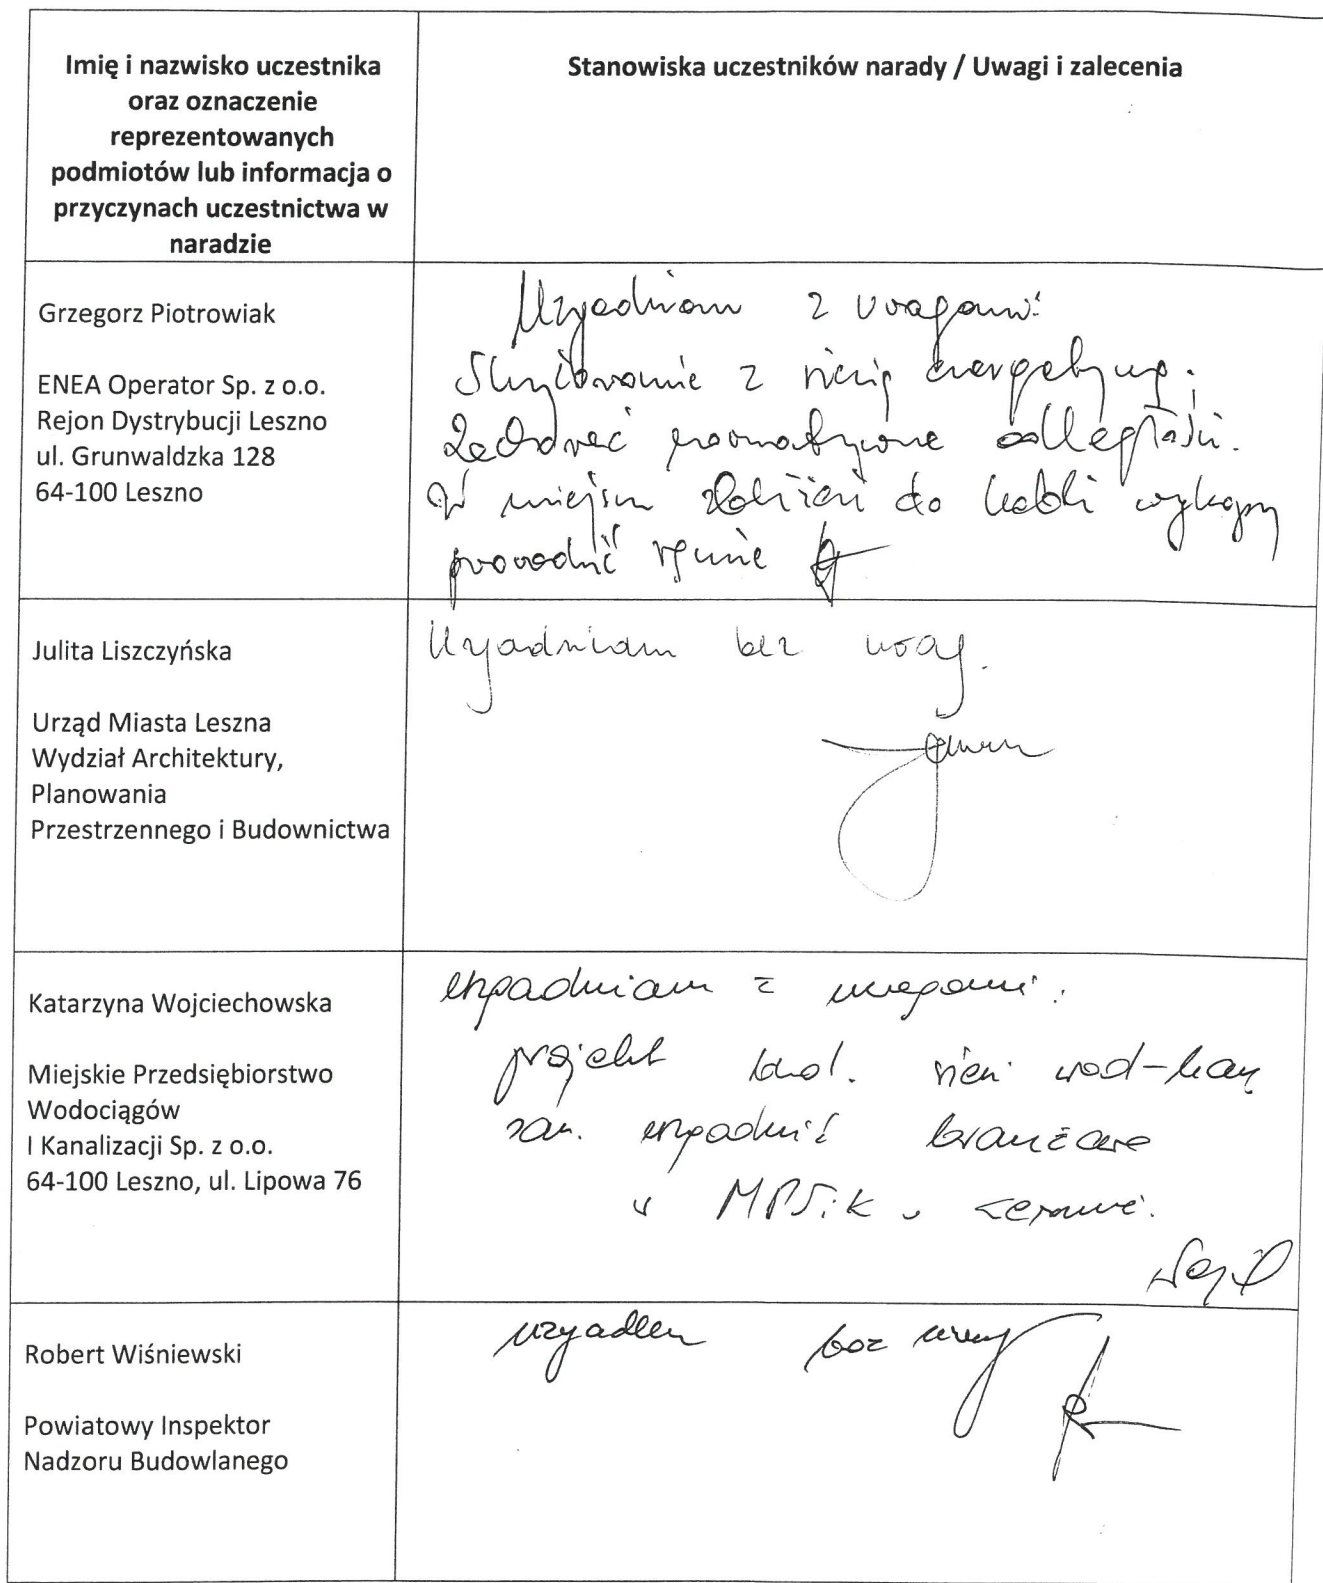 Imię i nazwisko uczestnika
oraz oznaczenie
reprezentowanych
podmiotów lub informacja o
przyczynach uczestnictwa w
naradzie
Stanowiska uczestników narady / Uwagi i zalecenia
Grzegorz Piotrowiak
ENEA Operator Sp. z o.o.
Rejon Dystrybucji Leszno
ul. Grunwaldzka 128
64-100 Leszno
Uzgadniam z uwagami:
Skrzyżowanie z siecią energetyczną.
Zachować normatywne odległości.
W miejscu zbliżeń do kabli wykopy
prowadzić ręcznie
Julita Liszczyńska
Urząd Miasta Leszna
Wydział Architektury,
Planowania
Przestrzennego i Budownictwa
Uzgadniam bez uwag.
Katarzyna Wojciechowska
Miejskie Przedsiębiorstwo
Wodociągów
I Kanalizacji Sp. z o.o.
64-100 Leszno, ul. Lipowa 76
uzgadniam z uwagami:
projekt bud. sieci wod-kan
san. uzgodnić branżowo
w MPWiK w Lesznie.
Robert Wiśniewski
Powiatowy Inspektor
Nadzoru Budowlanego
bez uwag